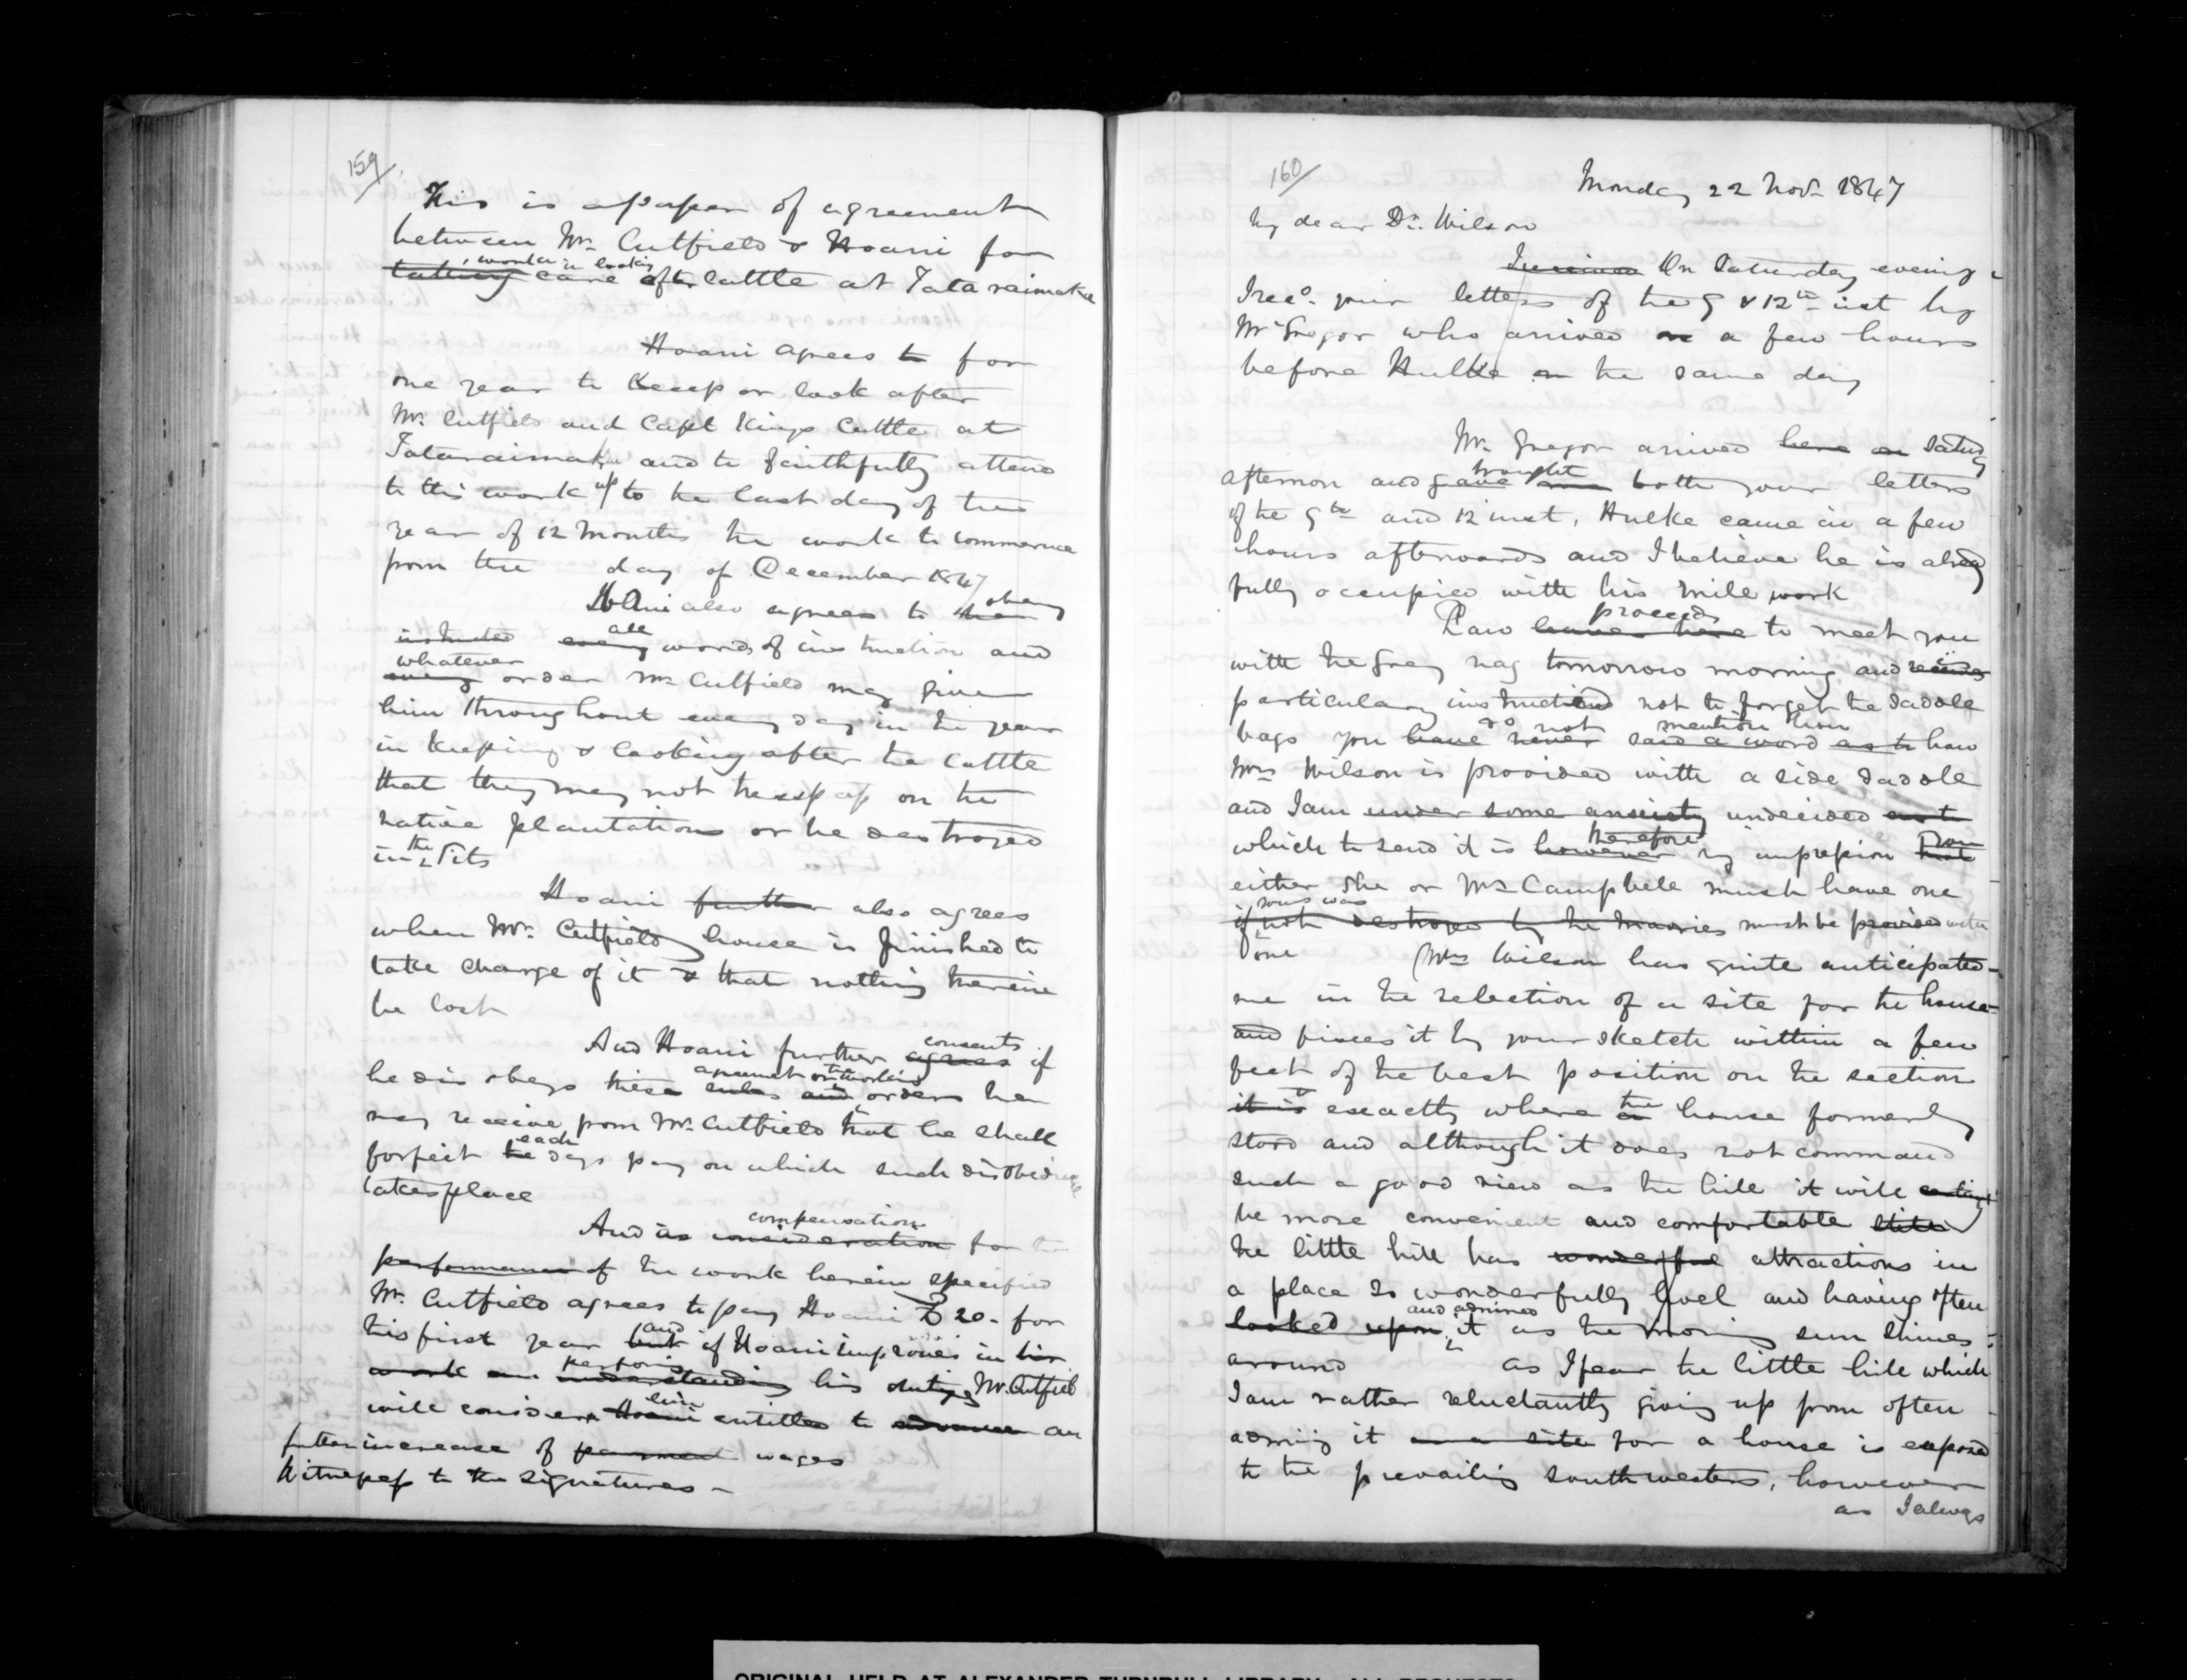 159/
This is a paper of agreement
between Mr. Cutfield & Hoani for
work in looking
taking care after Cattle at Tataraimaka
Hoani agrees to for
one year to Keep or look after
Mr. Cutfield and Capt Kings Cattle at
Tataraimaka and to faithfully attend
to this work up to the last day of the
year of 12 Months the work to commence
from the day of December 1847
Hoani also agrees to obey
instructed every all words of instruction and
whatever
every order Mr Cutfield may give
him throughout every day in the year
in Keeping & looking after the Cattle
that they may not trespass on the
native plantations or be destroyed
in the Pits
Hoani further also agrees
when Mr. Cutfields house is finished to
take charge of it & that nothing therein
be lost
And Hoani further agrees consents if
he disobeys these rules and agreement or the working orders he
may receive from Mr. Cutfield that he shall
forfeit the each days pay on which such disobedience
takes place
compensation
And as consideration for the
performance of the work herein specified
Mr. Cutfield agrees to pay Hoani £20 - for
this first year but and if Hoani improves in his
work in understanding performing his duties Mr. Cutfield
will consider Hoani him entitled to advance an
further increase of payment wages
Witnesses to the signatures -
160/
Monday 22 Novr 1847
My dear Dr. Wilson
On Saturday evening
I recd. your letters of the 9 & 12th inst by
McGregor who arrived on a few hours
before Hulke on the same day
Mc Gregor arrived here on Saturdy
afternoon and gave me brought both your letters
of the 9th and 12 inst, Hulke came in a few
hours afterwards and I believe he is alredy
fully occupied with his Mill work
proceeds
Raw leaves here to meet you
with the Grey nag tomorrow morning and
particulary instructed not to forget the Saddle
bags you have never do not said a word as to mention how
Mrs Wilson is provided with a side saddle
and I am under some anxiety undecided as to
which to send it is however therefore my impression that
either she or Mrs Campbell must have one
if yours was not destroyed by the Maories must be provided with
one Mrs Wilson has quite anticipated
me in the selection of a site for the house
and fixes it by your sketch within a few
feet of the best position on the section
it is exactly where a the house formerly
stood and although it does not command
such a good view as the hill it will
be more convenient and comfortable still
the little hill has wonderful attractions in
a place so wonderfully level and having often
looked upon and admired it as the morning sun shines
around as I fear the little hill which
I am rather reluctantly giving up from often
admirig it as a site for a house is exposed
to the prevailing southwesters, however
as I always
ORIGINAL HELD AT ALEXANDER TURNBULL LIBRARY. ALL REQUESTS